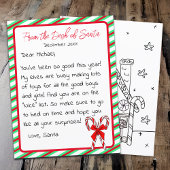 From the Desk of Santa
December 20XX
Dear Michael,
You've been so good this year!
My elves are busy making lots
of toys for all the good boys
and girls! You are on the
"nice" list. So make sure to go
to bed on time and hope you
like all your surprises!
Love, Santa